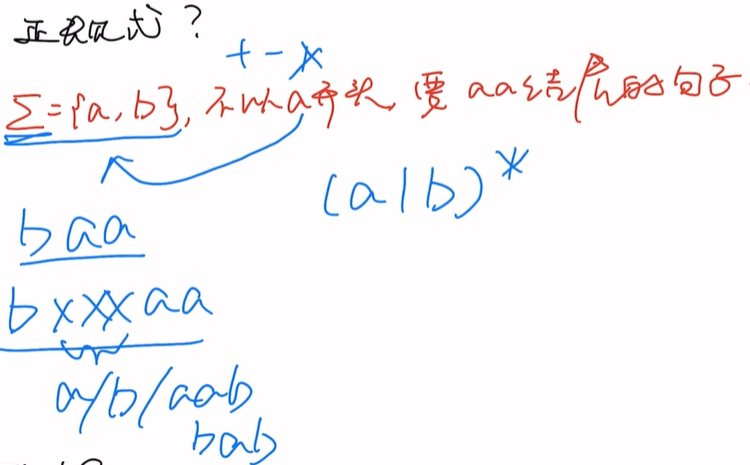 正规式?
+ - ×
Σ={a,b},不以a开头,要aa结尾的句子
(a|b)*
baa
bxxxaa
a/b/aab
bab